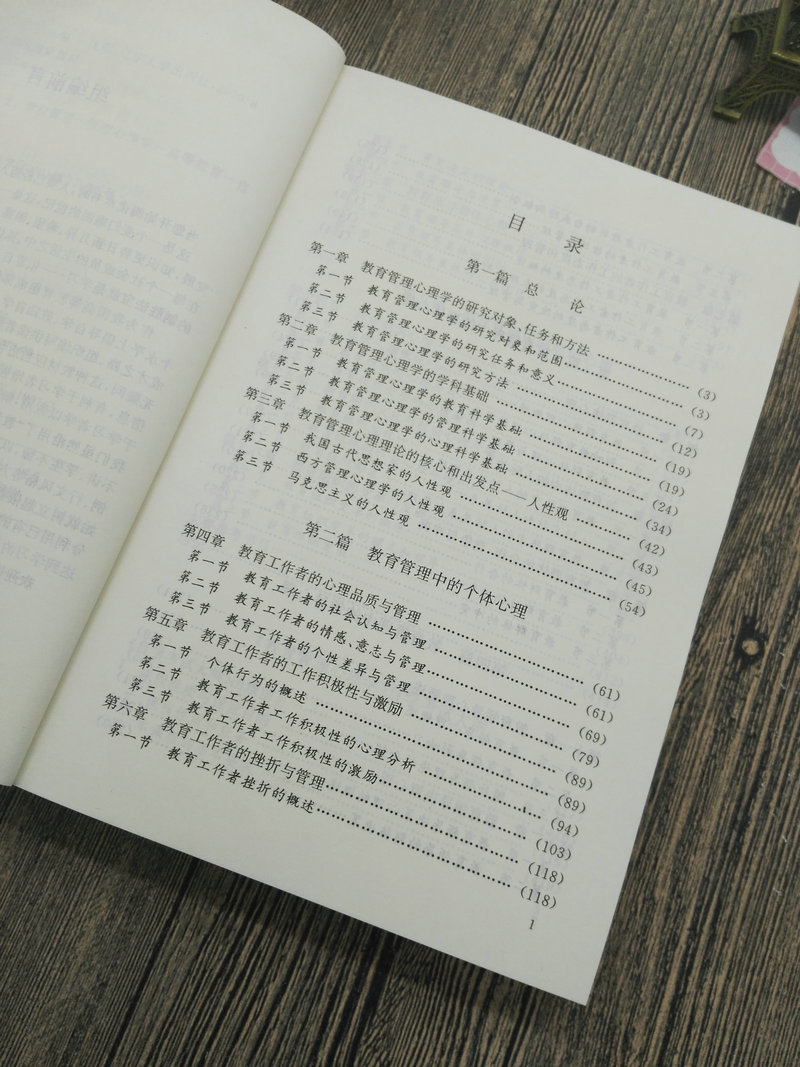 目 录
第一篇 总 论
第一章 教育管理心理学的研究对象、任务和方法 ……………… (3)
第一节 教育管理心理学的研究对象和范围 ……………… (3)
第二节 教育管理心理学的研究任务和意义 ……………… (7)
第三节 教育管理心理学的研究方法 ……………… (12)
第二章 教育管理心理学的学科基础 ……………… (19)
第一节 教育管理心理学的教育科学基础 ……………… (19)
第二节 教育管理心理学的管理科学基础 ……………… (24)
第三节 教育管理心理学的心理科学基础 ……………… (34)
第三章 教育管理心理理论的核心和出发点——人性观 ……………… (42)
第一节 我国古代思想家的人性观 ……………… (43)
第二节 西方管理心理学的人性观 ……………… (45)
第三节 马克思主义的人性观 ……………… (54)
第二篇 教育管理中的个体心理
第四章 教育工作者的心理品质与管理 ……………… (61)
第一节 教育工作者的社会认知与管理 ……………… (61)
第二节 教育工作者的情感、意志与管理 ……………… (69)
第三节 教育工作者的个性差异与管理 ……………… (79)
第五章 教育工作者的工作积极性与激励 ……………… (89)
第一节 个体行为的概述 ……………… (89)
第二节 教育工作者工作积极性的心理分析 ……………… (94)
第三节 教育工作者工作积极性的激励 ……………… (103)
第六章 教育工作者的挫折与管理 ……………… (118)
第一节 教育工作者挫折的概述 ……………… (118)
1